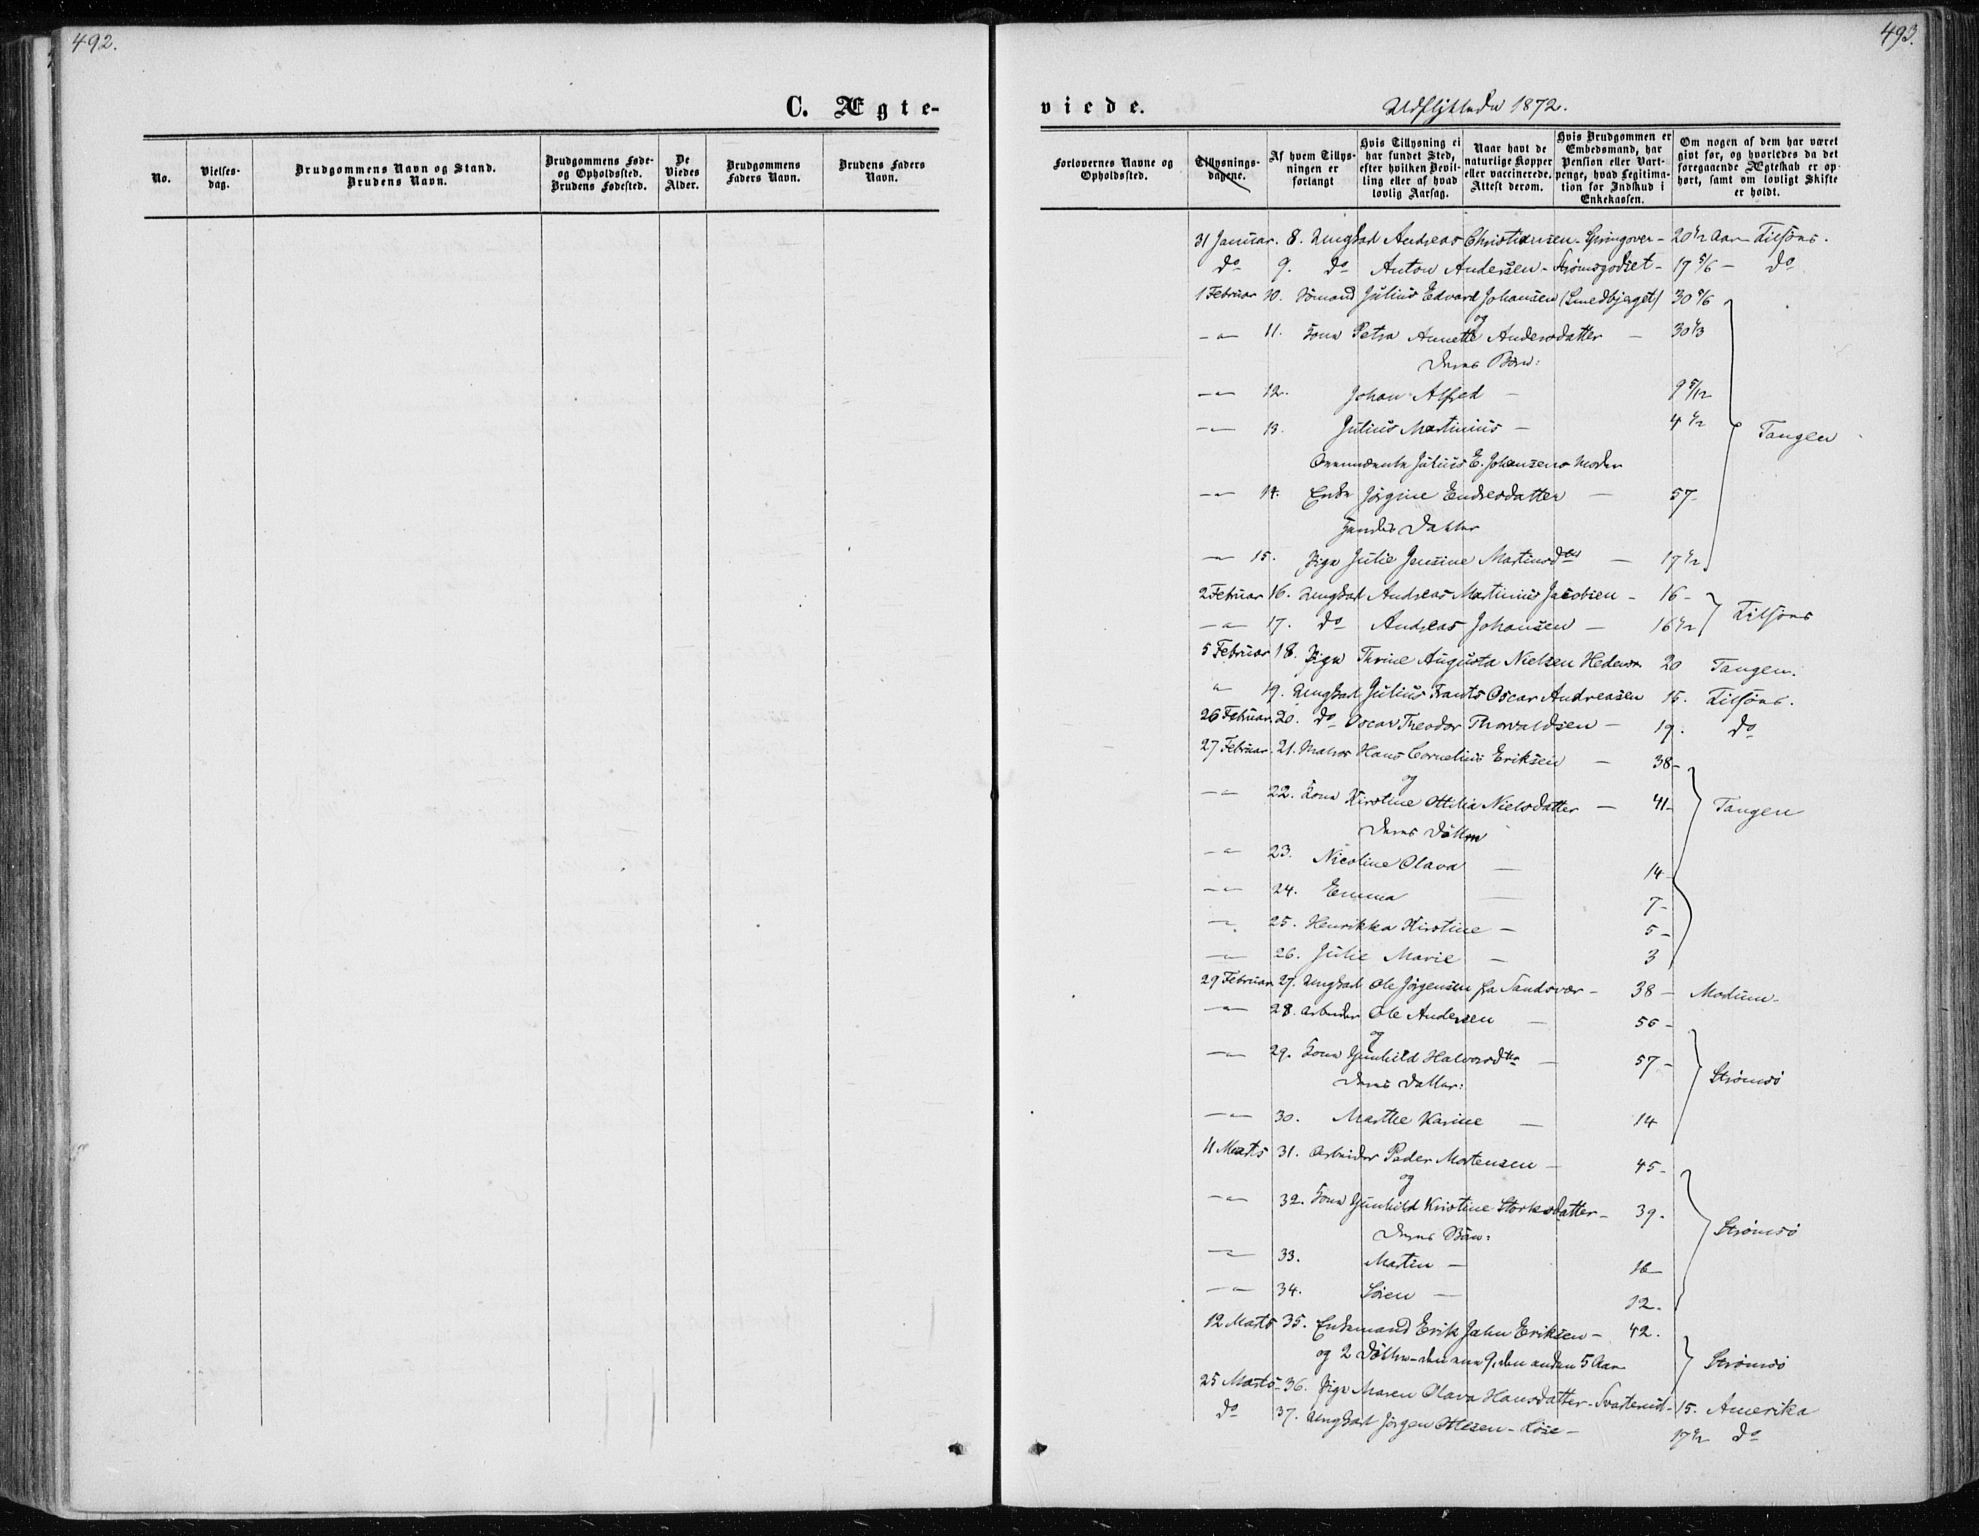 492.
C. Ægte-
No.
Vielses-
dag.
Brudgommens Navn og Stand.
Brudens Navn.
Brudgommens Føde-
og Opholdssted.
Brudens Fødested.
De
Viedes
Alder.
Brudgommens
Faders Navn.
Brudens Faders
Navn.
493.
viede.
Udflyttede 1872.
Forlovernes Navne og
Opholdssted.
Tillysnings-
dagene.
Af hvem Tillys-
ningen er
forlangt
Hvis Tillysning ei
har fundet Sted,
efter hvilken Bevil-
ling eller af hvad
lovlig Aarsag.
Naar havt de
naturlige Kopper
eller vaccinerede.
Attest derom.
Hvis Brudgommen er
Embedsmand, har
Pension eller Vart-
penge, hvad Legitima-
tion for Indskud i
Enkekassen.
Om nogen af dem har været
givt før, og hvorledes da det
foregaaende Ægteskab er op-
hørt, samt om lovligt Skifte
er holdt.
31 Januar. 8. Ungkarl Andreas Christiansen - Springover - 20 1/2 Aar - Tilsøns.
do 9. do Anton Andersen - Strømsgodset - 17 5/6 - do
1 Februar 10. Sømand Julius Edvard Johansen (Smedbjerget) 30 5/6
og
-"- 11. Kone Petra Annette Andersdatter - 30 1/3
Deres Børn:
-"- 12. Johan Alfred - 9 5/12
-"- 13. Julius Martinius - 4 1/2 Tangen
Ovennævnte Julius E. Johansens Moder
-"- 14. Enke Jørgine Endresdatter - 57-
Hendes Datter
-"- 15. Pige Julie Jensine Martinsdtr - 17 1/2
2 Februar 16. Ungkarl Andreas Martinius Jacobsen - 16 -
-"- 17. do Andreas Johansen - 16 1/2 Tilsøns
5 Februar 18. Pige Thrine Augusta Nielsen 20 Tangen.
" 19. Ungkarl Julius Frants Oscar Andreasen 15. Tilsøns.
26 Februar 20. do Oscar Theodor Thorvaldsen - 19. do
27 Februar. 21. Matros Hans Cornelius Eriksen - 38 -
og
-"- 22. Kone Kirstine Ottilia Nielsdatter - 41 - Tangen
Deres Døttre
-"- 23. Nicoline Olava - 14 -
-"- 24. Emma - 7 -
-"- 25. Henrikka Kirstine - 5 -
-"- 26. Julie Marie - 3
29 Februar 27. Ungkarl Ole Jørgensen fra Sandsvær - 38 - Modum -
-"- 28. Arbeider Ole Andersen - 56 -
og
-"- 29. Kone Gunhild Halvorsdtr - 57 -
Deres Datter: Strømsø
-"- 30. Marthe Karine - 14
11 Marts 31. Arbeider Peder Mortensen - 45 -
og
-"- 32. Kone Gunhild Kristine Storksdatter - 39.
Deres Børn: Strømsø
-"- 33. Martin - 16
-"- 34. Søren - 12.
12 Marts 35. Enkemand Erik Jahn Eriksen - 42.
og 2 Døttre - den ene 9, den anden 5 Aar Strømsø
25 Marts - 36. Pige Maren Olava Hansdatter - Svarterud - 15. Amerika
do 37. Ungkarl Jørgen Ottesen - Løse - 17 1/2 do